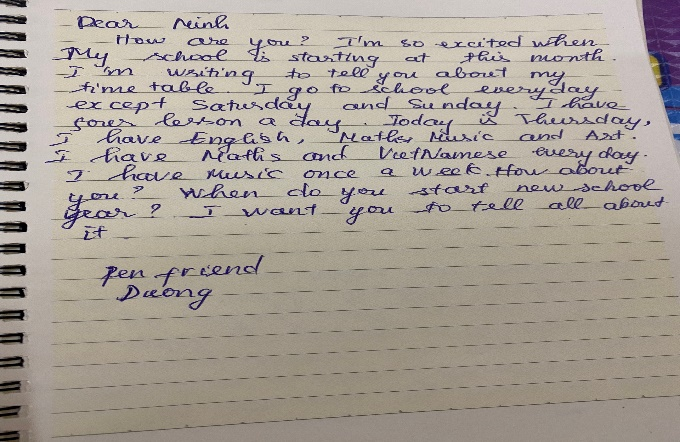 Dear Ninh
How are you? I'm so excited when
My school is starting at this month.
I'm writing to tell you about my
time table. I go to school everyday
except Saturday and Sunday. I have
four lesson a day. Today is Thursday,
I have English, Maths, Music and Art.
I have Maths and VietNamese every day.
I have Music once a week. How about
you? When do you start new school
year? I want you to tell all about
it
Pen friend
Duong